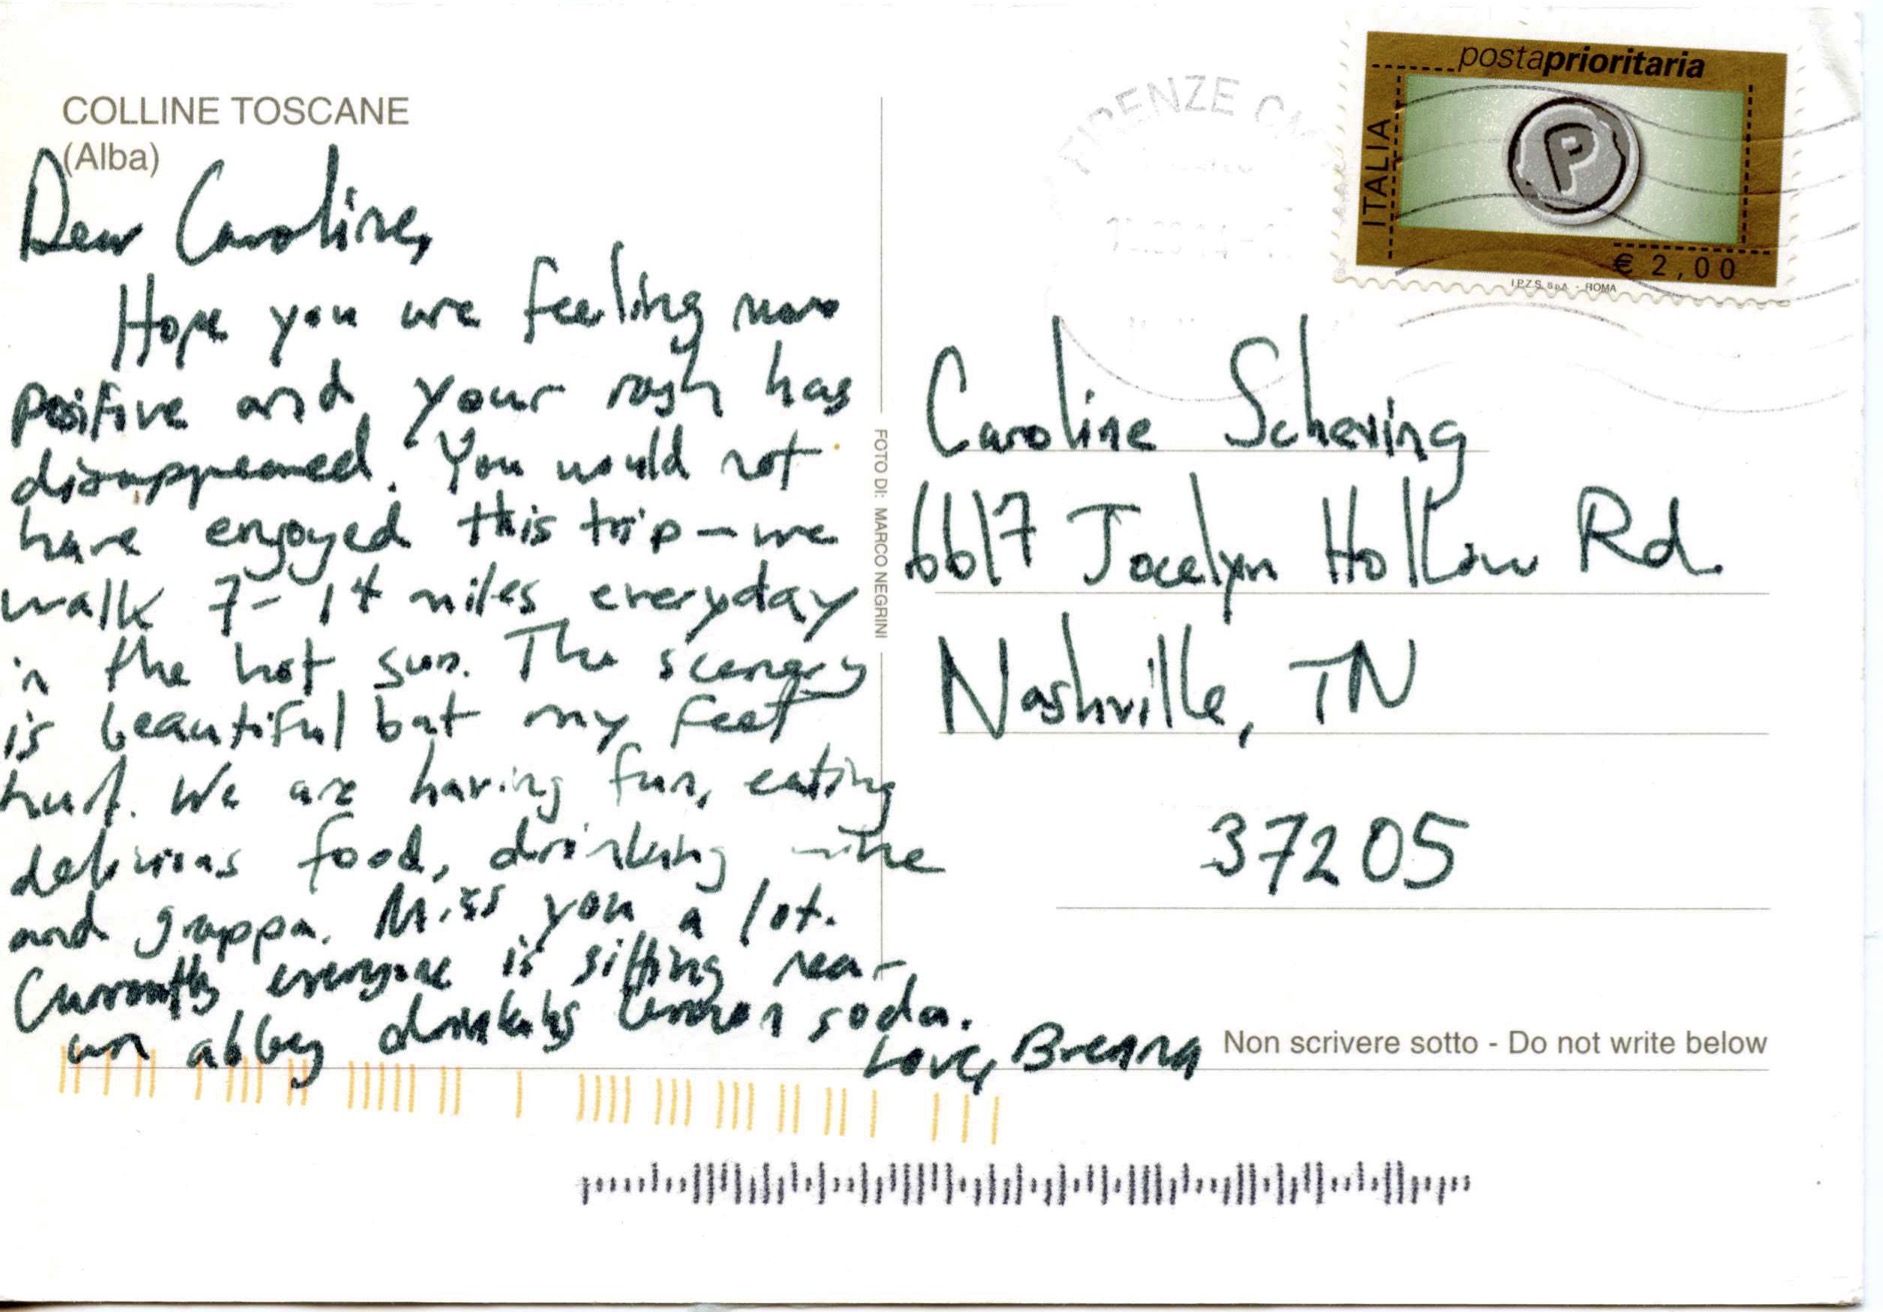 COLLINE TOSCANE
(Alba)
Dear Caroline,
Hope you are feeling more
positive and your rash has
disappeared. You would not
have enjoyed this trip – we
walk 7-14 miles everyday
in the hot sun. The scenery
is beautiful but my feet
hurt. We are having fun, eating
delicious food, drinking wine
and grappa. Miss you a lot.
Currently everyone is sitting near
an abbey drinking lemon soda.
Love, Brenna
FOTO DI: MARCO NEGRINI
FIRENZE CMP
postaprioritaria
ITALIA
P
€ 2,00
I.P.Z.S. S.p.A. - ROMA
Caroline Scheving
6617 Jocelyn Hollow Rd.
Nashville, TN
37205
Non scrivere sotto - Do not write below